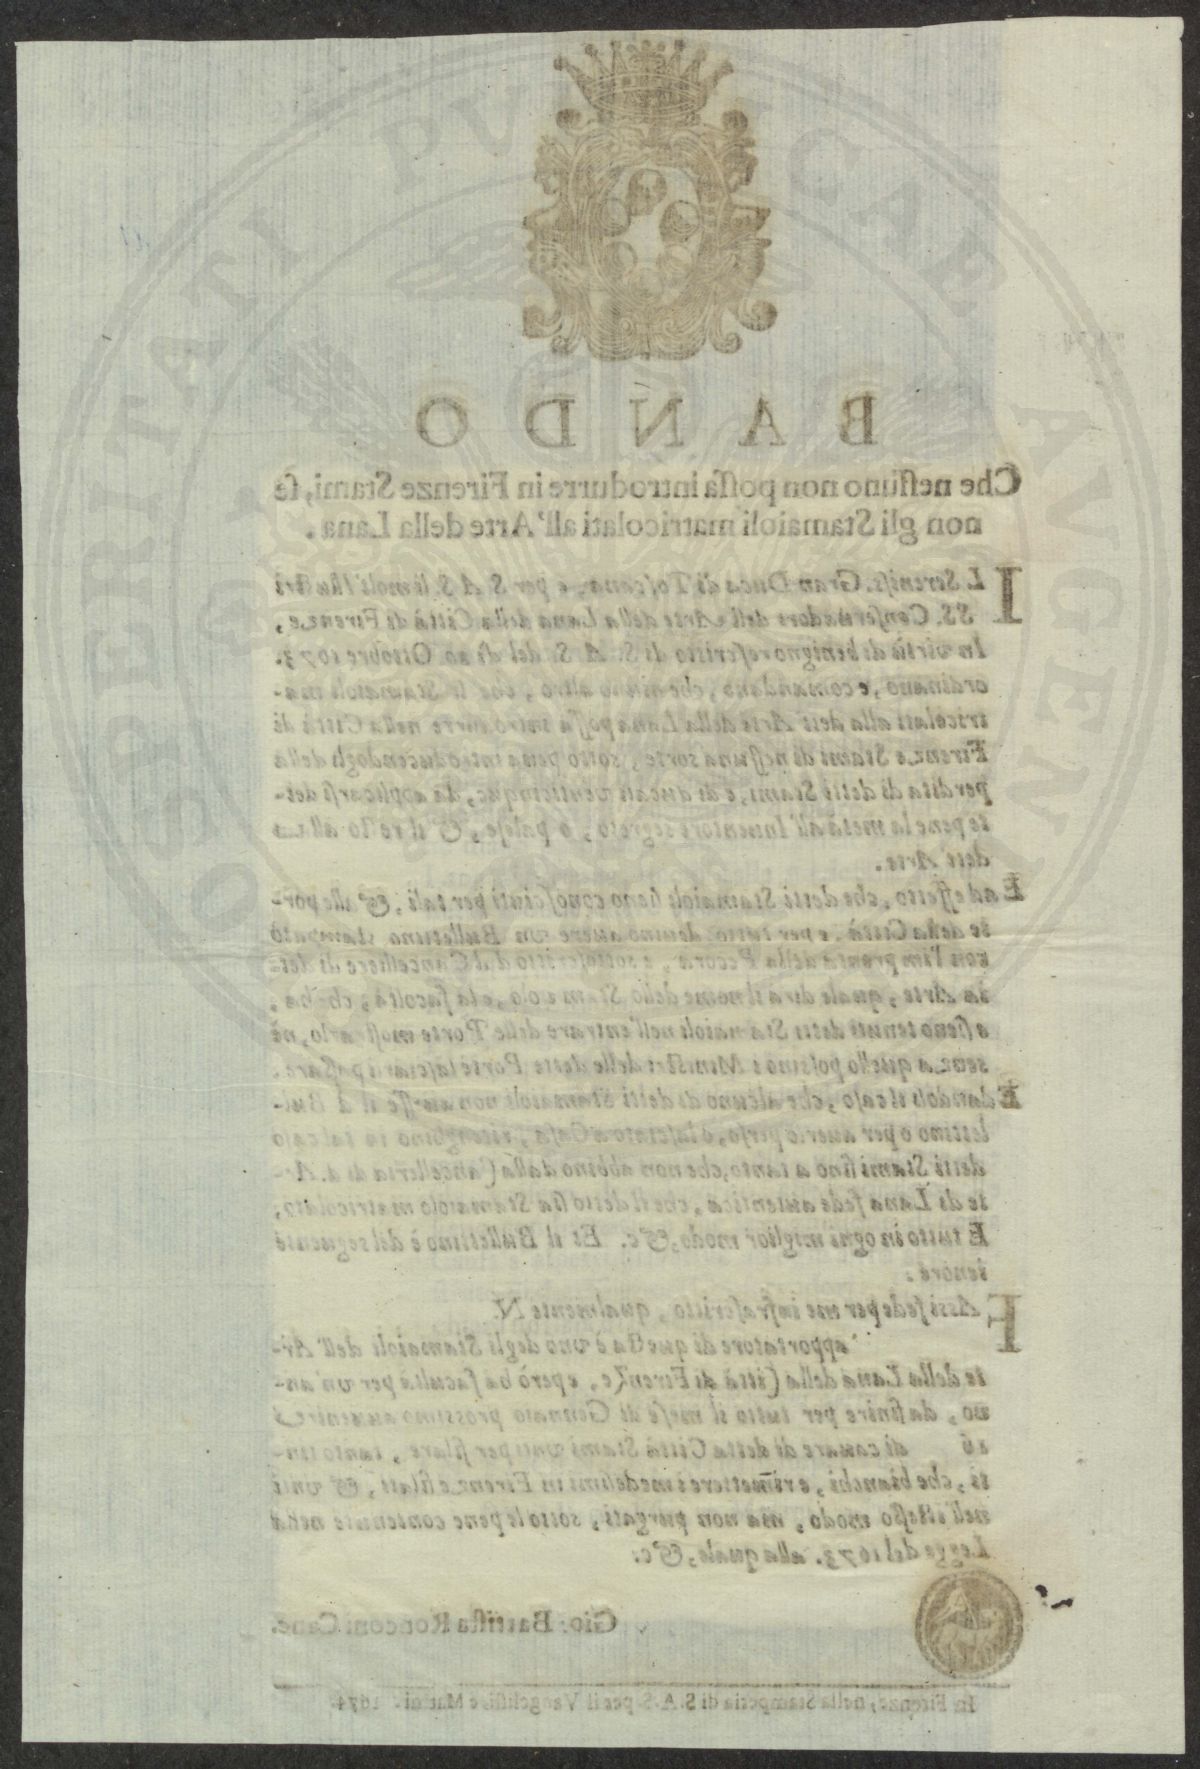 BANDO
Che nessuno non possa introdurre in Firenze Stami, se
non gli Stamaioli matricolati all'Arte della Lana.
IL Sereniss. Gran Duca di Toscana, e per S. A. S. li molt'Illustri
SS. Conservadori dell'Arte della Lana della Città di Firenze,
In virtù di benigno rescritto di S. A. S. del dì 26 Ottobre 1673.
ordinano, e comandano, che niuno altro, che li Stamaioli ma-
tricolati alla dett'Arte della Lana possa introdurre nella Città di
Firenze Stami di nessuna sorte, sotto pena introducendogli della
perdita di detti Stami, e di ducati venticinque, da applicarsi det-
te pene la metà all'Inventore segreto, o palese, & il resto alla
dett'Arte.
Ed effetto, che detti Stamaioli sieno conosciuti per tali, & alle por-
te della Città, e per tutto devino avere un Bullettino stampato
con l'impronta della Pecora, e sottoscritto dal Cancelliere di det-
ta Arte, quale dirà il nome dello Stamaiolo, e la facoltà, che ha,
e sieno tenuti detti Stamaioli nell'entrare delle Porte mostrarlo, nè
senza quello possino i Ministri delle dette Porte lasciarli passare.
E dandosi il caso, che alcuno di detti Stamaioli non avesse il d. Bul-
lettino o per averlo perso, o lasciato a Casa, ritenghino in tal caso
detti Stami sino a tanto, che non abbino dalla Cancelleria di d. Ar-
te di Lana fede autentica, che il detto sia Stamaiolo matricolato,
E tutto in ogni miglior modo, &c. Et il Bullettino è del seguente
tenore:
FAssi fede per me infrascritto, qualmente N.
apportatore di questa è uno degli Stamaioli dell'Ar-
te della Lana della Città di Firenze, e però ha facultà per un an-
no, da finire per tutto il mese di Gennaio prossimo avvenire
16 di cavare di detta Città Stami unti per filare, tanto tin-
ti, che bianchi, e rimettere i medesimi in Firenze filati, & unti
nell'istesso modo, ma non purgati, sotto le pene contenute nella
Legge del 1673. alla quale, &c:
Gio: Battista Ronconi Canc.
In Firenze, nella Stamperia di S.A.S. per il Vangelisti, e Matini. 1674